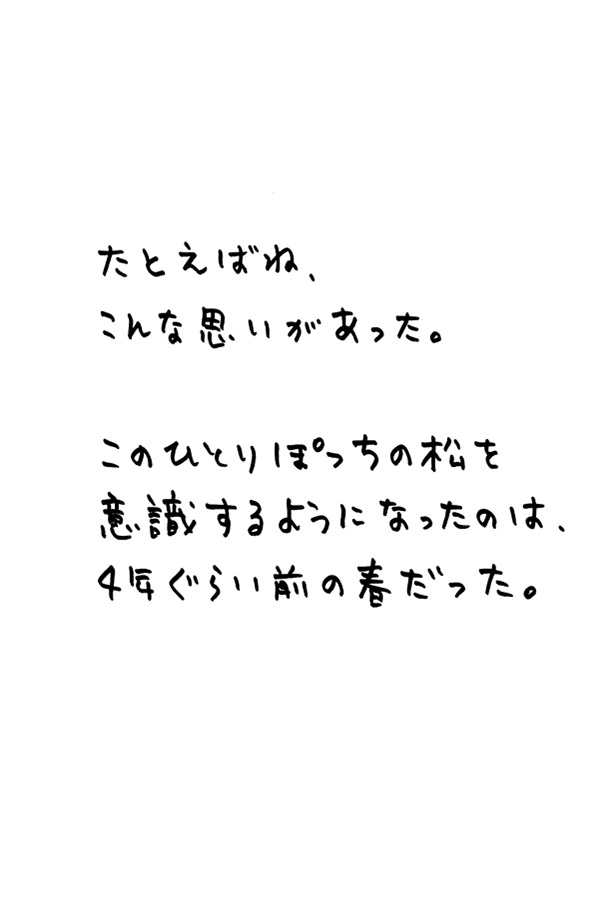 たとえばね、
こんな思いがあった。
このひとりぽっちの松を
意識するようになったのは、
4年ぐらい前の春だった。